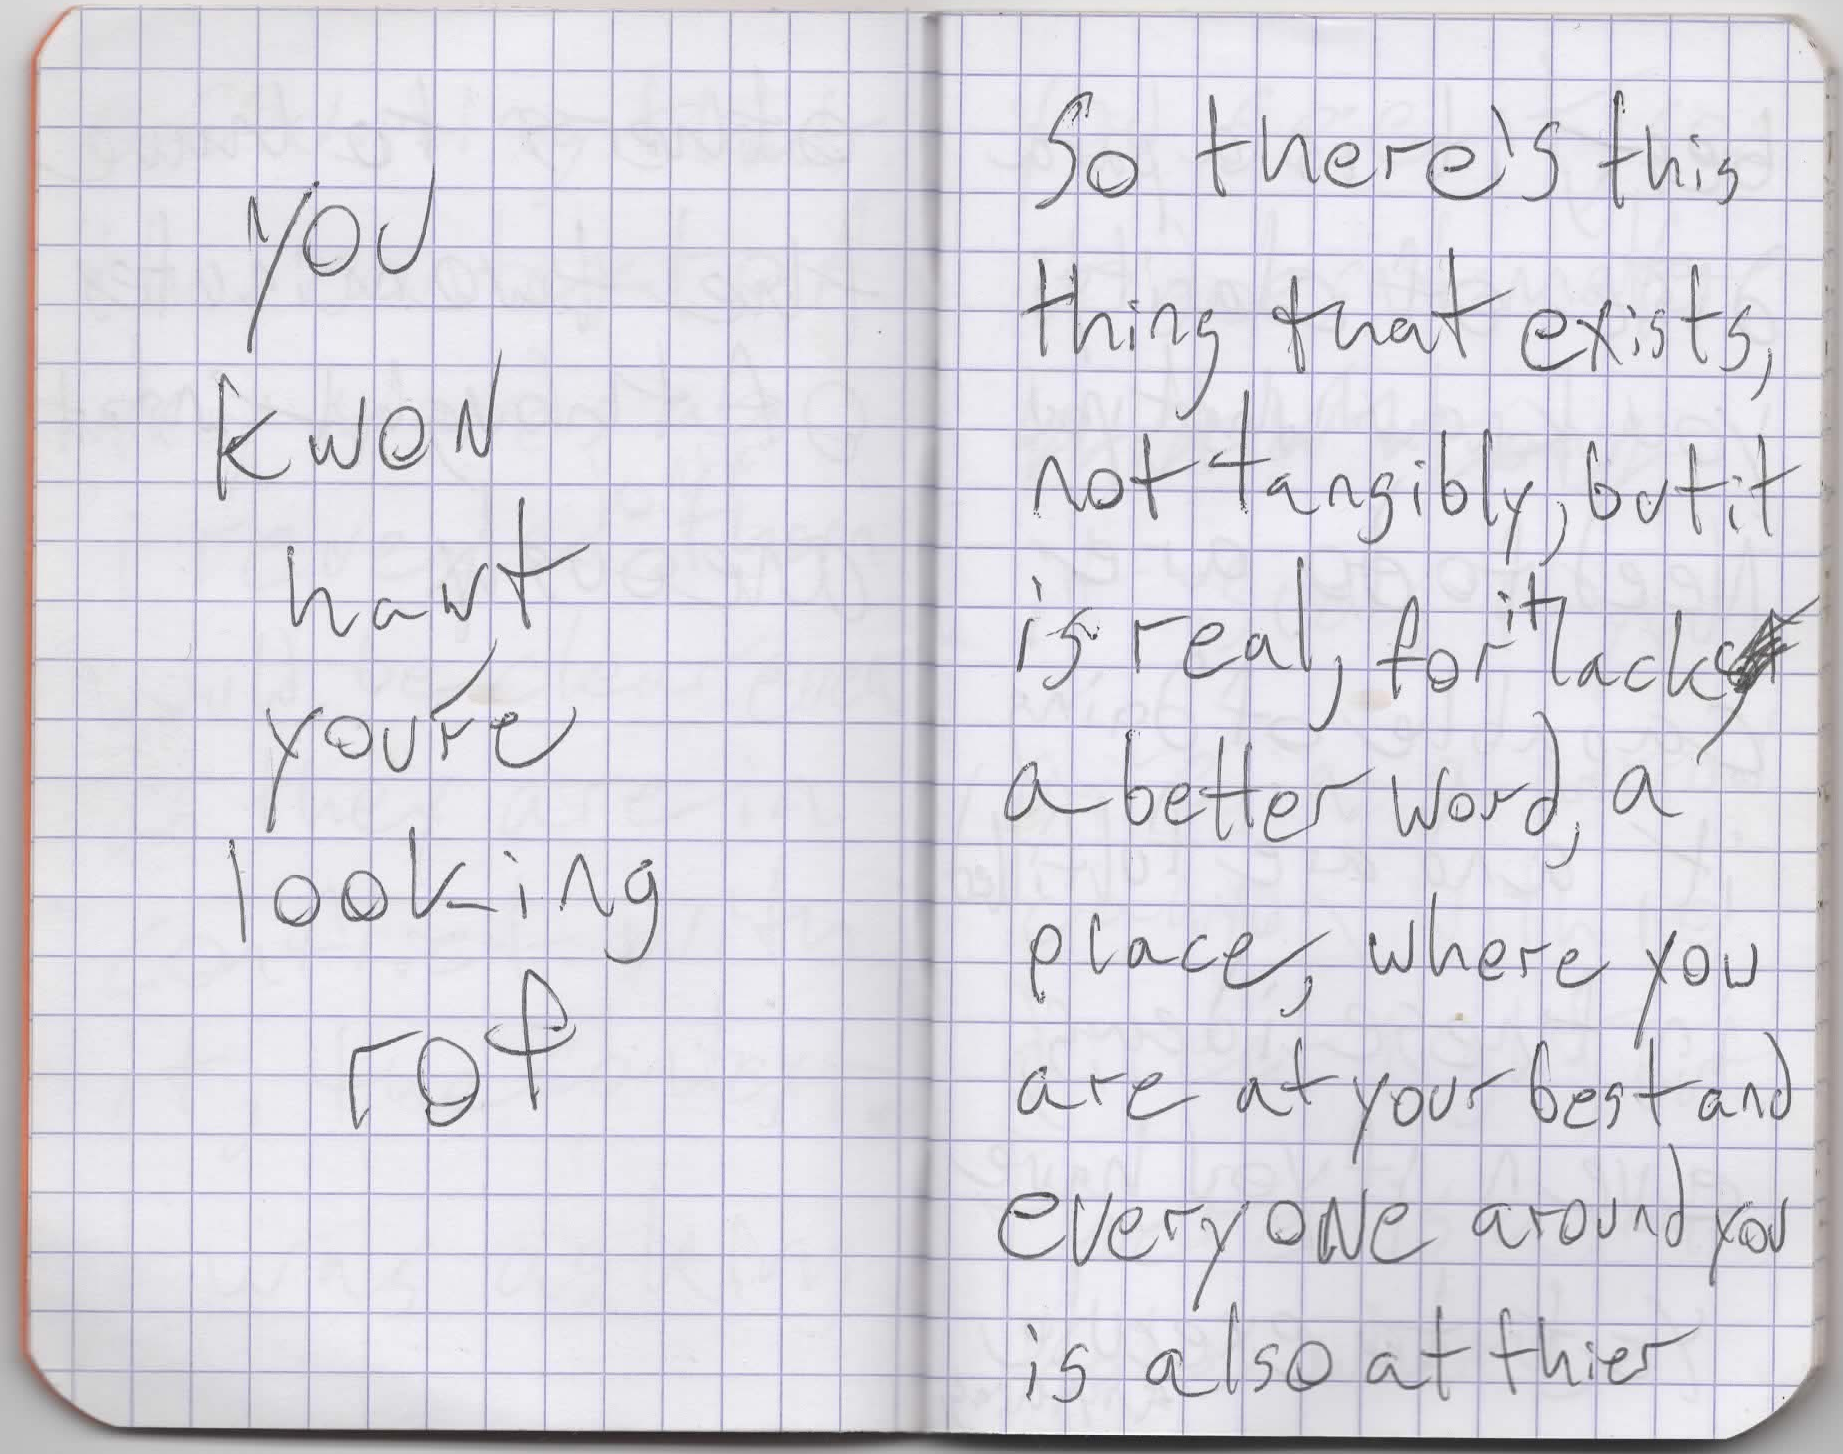 you
kwon
hawt
you're
looking
rof
So there's this
thing that exists,
not tangibly, but it
is real, for it lacks
a better word, a
place, where you
are at your best and
everyone around you
is also at thier